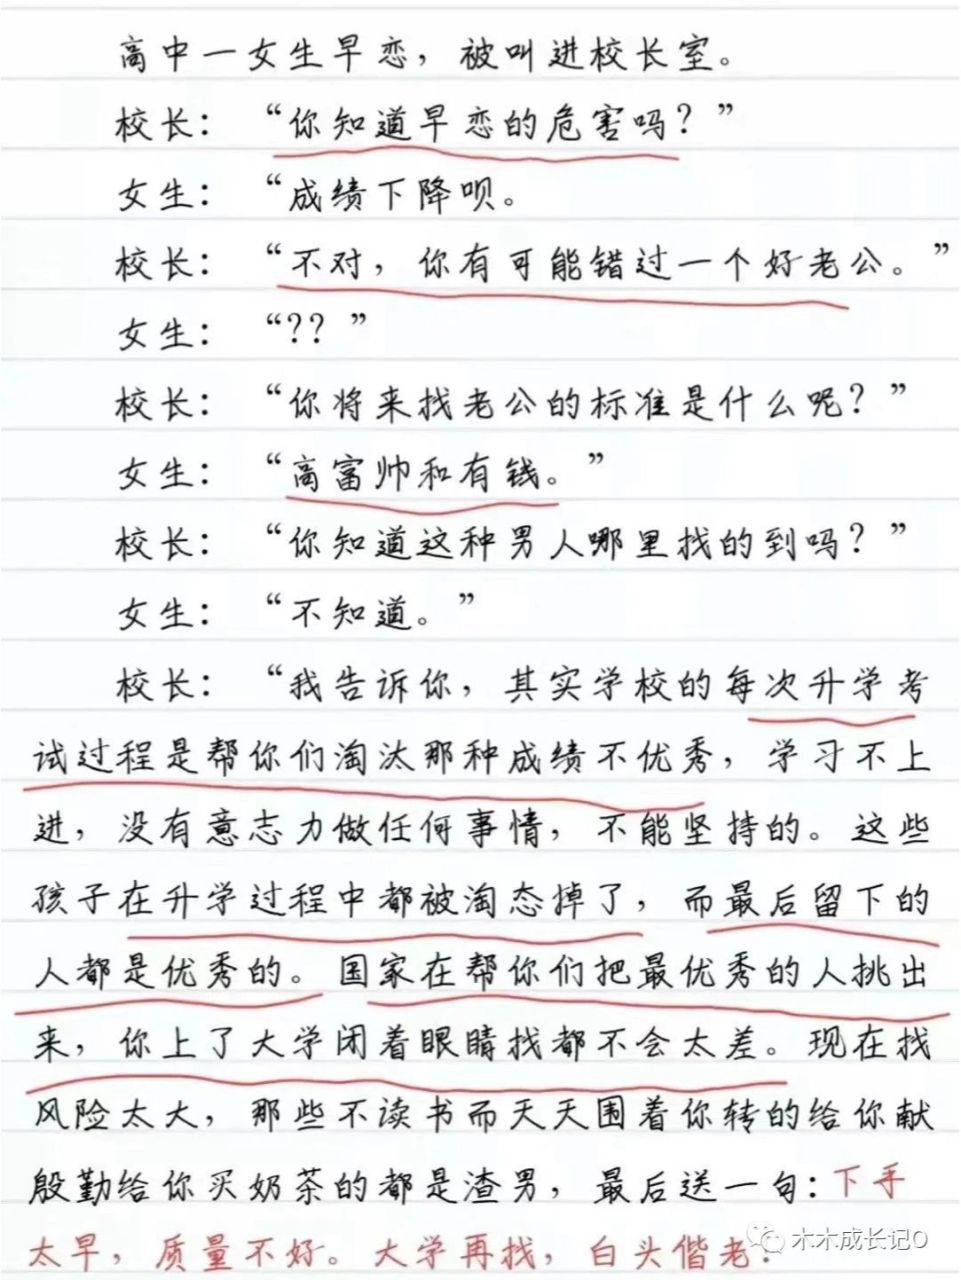 高中一女生早恋，被叫进校长室。
校长：“你知道早恋的危害吗？”
女生：“成绩下降呗。
校长：“不对，你有可能错过一个好老公。”
女生：“??”
校长：“你将来找老公的标准是什么呢？”
女生：“高富帅和有钱。”
校长：“你知道这种男人哪里找的到吗？”
女生：“不知道。”
校长：“我告诉你，其实学校的每次升学考
试过程是帮你们淘汰那种成绩不优秀，学习不上
进，没有意志力做任何事情，不能坚持的。这些
孩子在升学过程中都被淘态掉了，而最后留下的
人都是优秀的。国家在帮你们把最优秀的人挑出
来，你上了大学闭着眼睛找都不会太差。现在找
风险太大，那些不读书而天天围着你转的给你献
殷勤给你买奶茶的都是渣男，最后送一句：下手
太早，质量不好。大学再找，白头偕老！
木木成长记O